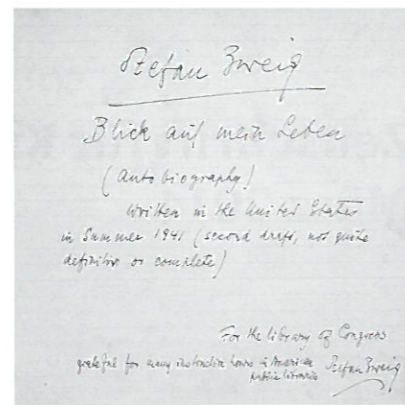 Stefan Zweig
Blick auf mein Leben
(Autobiography)
Written in the United States
in Summer 1941 (second draft, not quite
definitiv or complete)
For the library of Congress
grateful for many instructive hours in American
public libraries Stefan Zweig